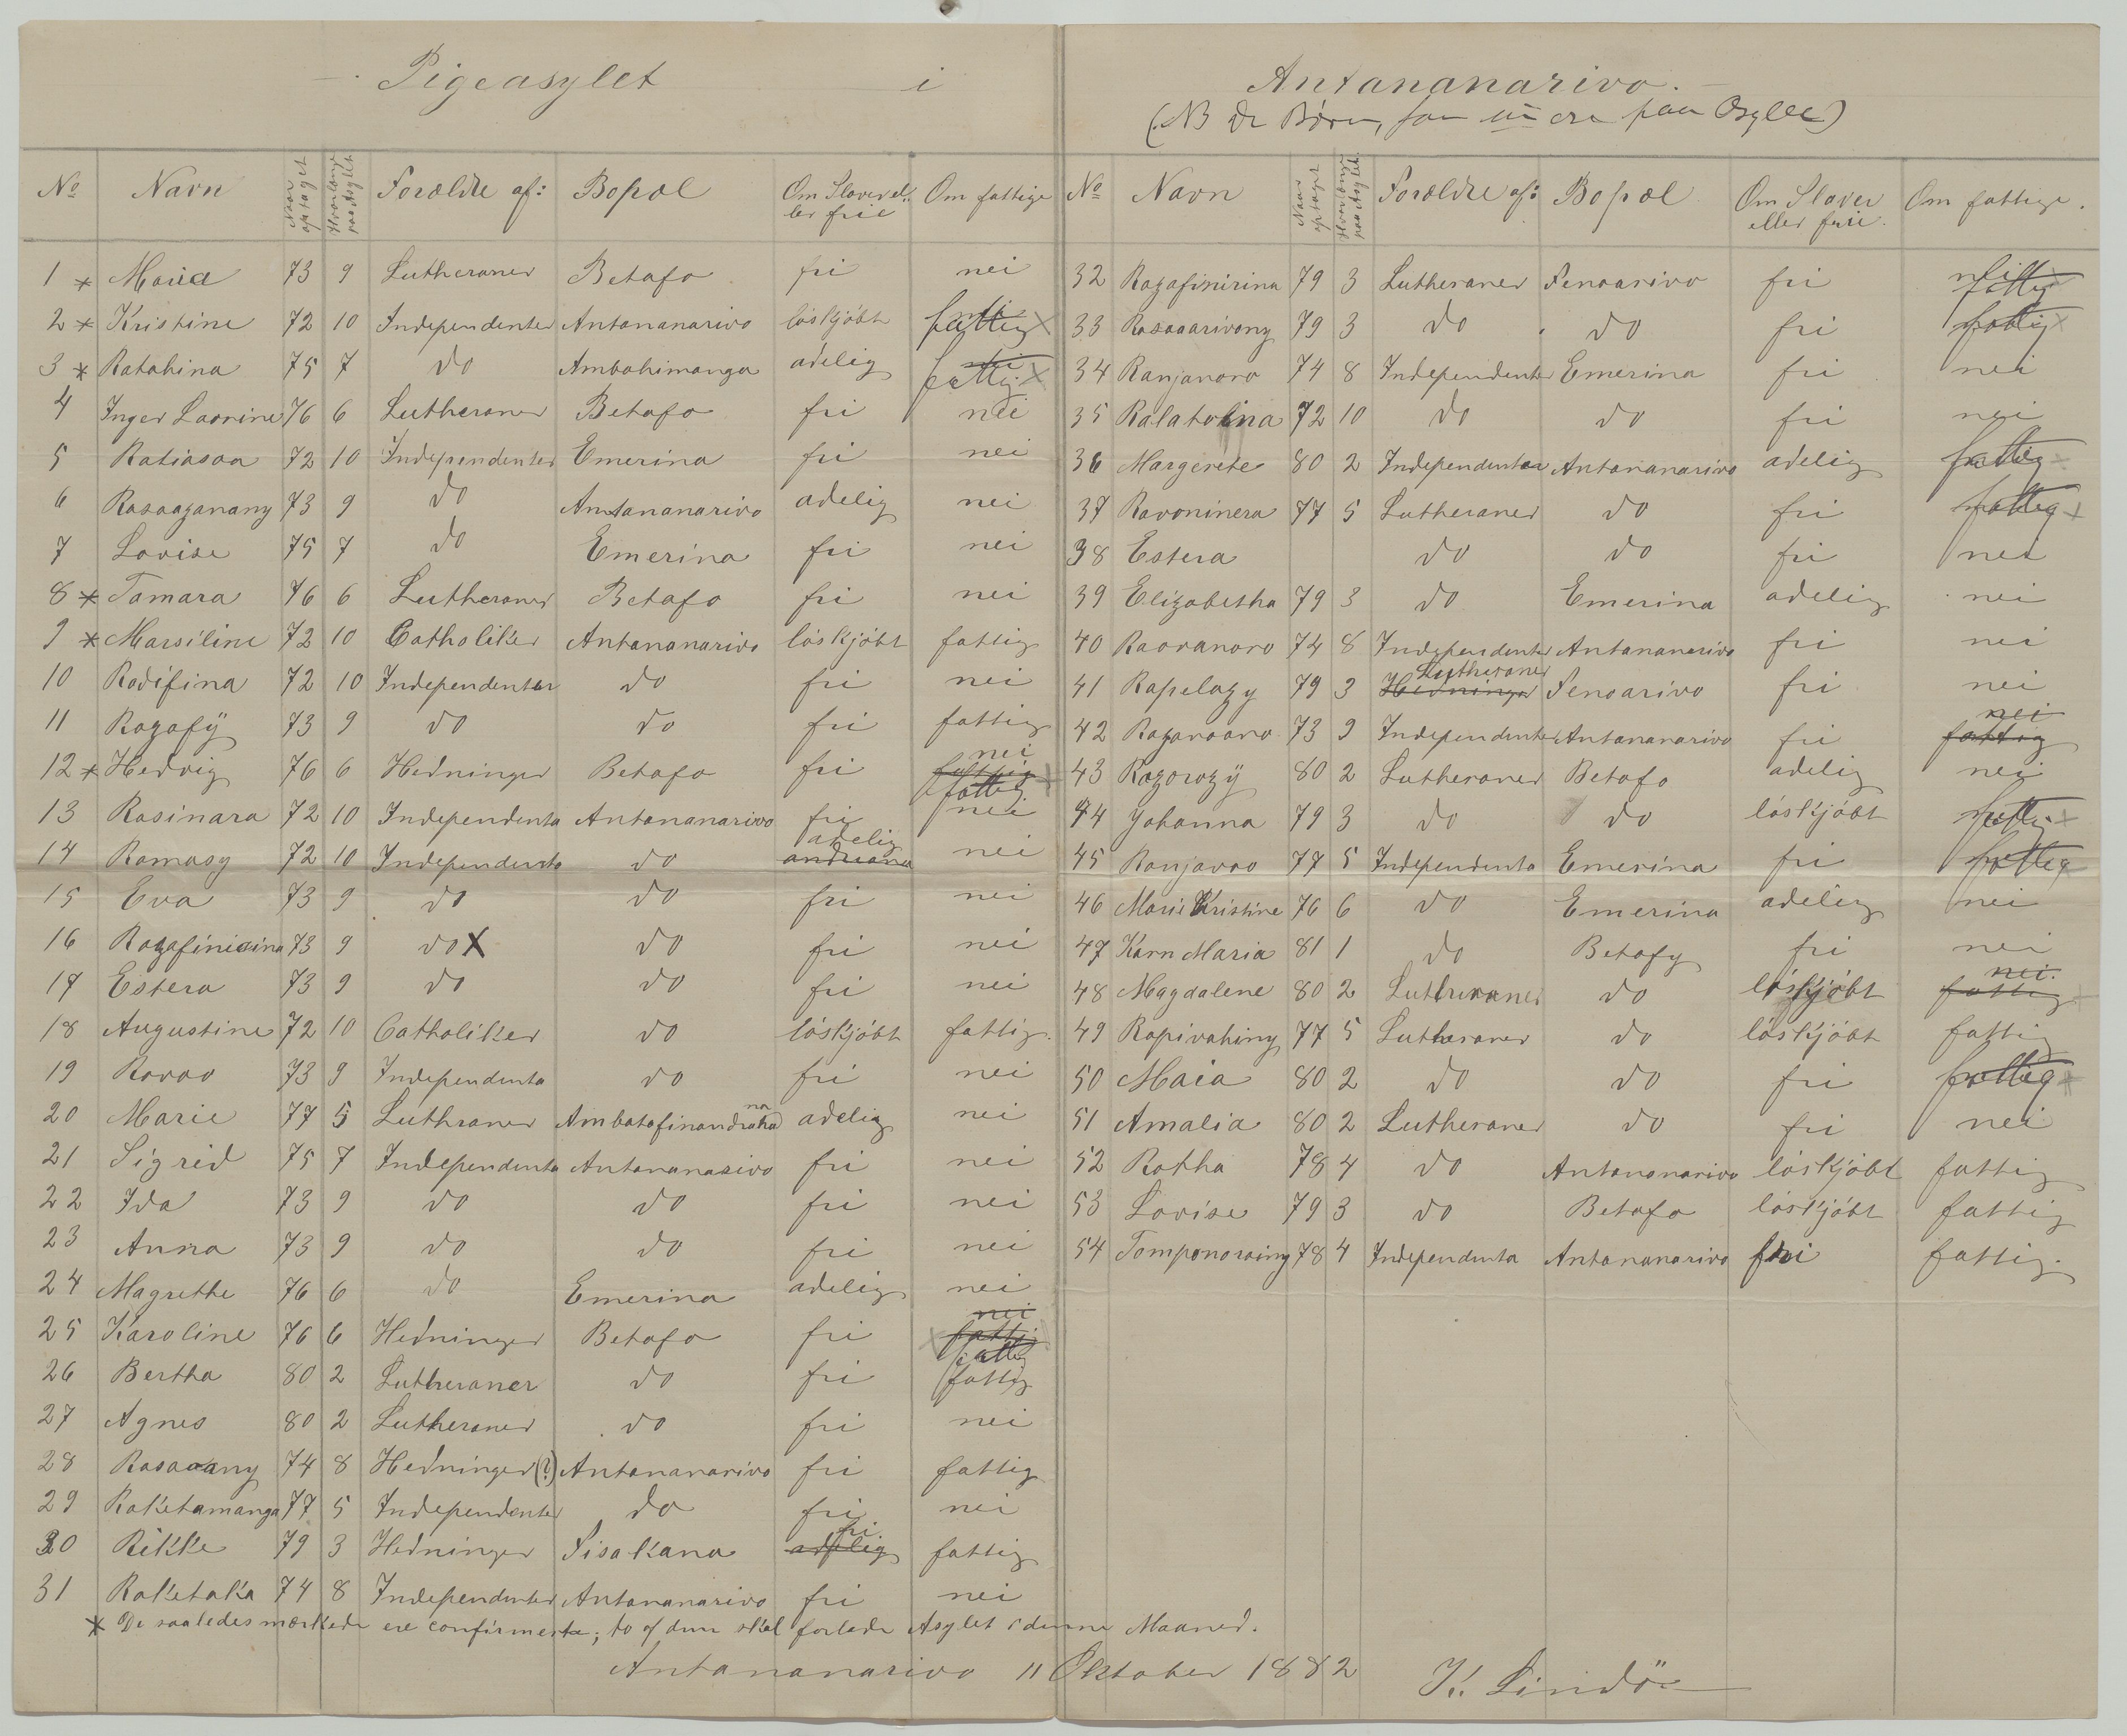 Pigeasylet i Antananarivo.
(NB De Börn, som nu ere paa Asylet)
No Navn Naar optaget Hvorlænge paa Asylet Forældre af: Bopæl Om Slaver eller frie Om fattige
1 * Maria 73 9 Lutheraner Betafo fri nei
2 * Kristine 72 10 Independenter Antananarivo löskjöbt nei fattig X
3 * Ratahina 75 7 do Ambohimanga adelig nei fattig X
4 Inger Laorine 76 6 Lutheraner Betafo fri nei
5 Ratiasoa 72 10 Independenter Emerina fri nei
6 Rasoazanany 73 9 do Antananarivo adelig nei
7 Lovise 75 7 do Emerina fri nei
8 * Tamara 76 6 Lutheraner Betafo fri nei
9 * Marsiline 72 10 Catholiker Antananarivo löskjöbt fattig
10 Radifina 72 10 Independenter do fri nei
11 Razafÿ 73 9 do do fri fattig
12 * Hedvig 76 6 Hedninger Betafo fri nei fattig fattig
13 Rasinara 72 10 Independenta Antananarivo fri nei
14 Ramasy 72 10 Independenta do adelig andriana nei
15 Eva 73 9 do do fri nei
16 Razafinirina 73 9 do X do fri nei
17 Estera 73 9 do do fri nei
18 Augustine 72 10 Catholiker do löskjöbt fattig.
19 Ravao 73 9 Independenta do fri nei
20 Marie 77 5 Luthraner Ambatofinandrahana adelig nei
21 Sigrid 75 7 Independenta Antananarivo fri nei
22 Ida 73 9 do do fri nei
23 Anna 73 9 do do fri nei
24 Magrethe 76 6 do Emerina adelig nei
25 Karoline 76 6 Hedninger Betafo fri nei X fattig fattig
26 Bertha 80 2 Lutheraner do fri fattig
27 Agnes 80 2 Lutheraner do fri nei
28 Rasoaany 74 8 Hedninger (?) Antananarivo fri fattig
29 Raketamanga 77 5 Independenter do fri nei
30 Rikke 79 3 Hedninger Sisakana fri adelig fattig
31 Raketaka 74 8 Independenter Antananarivo fri nei
No Navn Naar optaget Hvorlænge paa Asylet Forældre af: Bopæl Om Slaver eller frie. Om fattige.
32 Razafinirina 79 3 Lutheraner Fenoarivo fri nei fattig
33 Rasoaarivony 79 3 do do fri fattig X
34 Ranjanoro 74 8 Independenter Emerina fri nei
35 Ralatolina 72 10 do do fri nei
36 Margerete 80 2 Independenter Antananarivo adelig fattig X
37 Ravoninera 77 5 Lutheraner do fri fattig X
38 Estera do do fri nei
39 Elizabetha 79 3 do Emerina adelig nei
40 Raoranoro 74 8 Independenter Antananarivo fri nei
41 Rapelazy 79 3 Lutheraner Hedninger Fenoarivo fri nei
42 Razanoano 73 9 Independenter Antananarivo fri nei fattig
43 Razorozÿ 80 2 Lutheraner Betafo adelig nei
44 Johanna 79 3 do do löskjöbt fattig X
45 Ranjavao 77 5 Independenta Emerina fri fattig
46 Marie Kristine 76 6 do Emerina adelig nei
47 Karn Maria 81 1 do Betafy fri nei
48 Magdalene 80 2 Lutheraner do löskjöbt nei. fattig
49 Rapivahiny 77 5 Lutheraner do löskjöbt fattig
50 Maia 80 2 do do fri fattig X
51 Amalia 80 2 Lutheraner do fri nei
52 Rotha 78 4 do Antananarivo löskjöbt fattig
53 Lovise 79 3 do Betafo löskjöbt fattig
54 Tomponoraing 78 4 Independenta Antananarivo fri fattig.
* De saaledes mærkede ere confirmerte; to af dem skal forlade Asylet i denne Maaned.
Antananarivo 11 Oktober 1882 K. Lindö